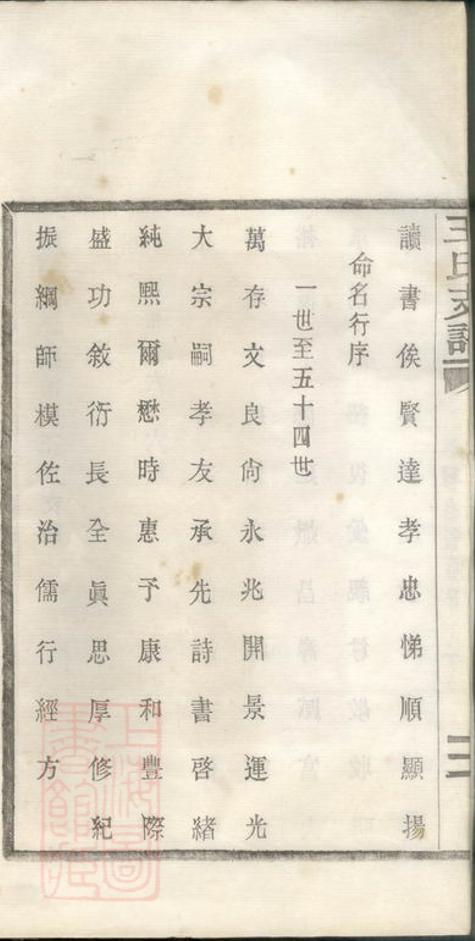 王氏支譜
讀書俟賢達孝忠悌順顯揚
命名行序
一世至五十四世
萬存文良尙永兆開景運光
大宗嗣孝友承先詩書啓緒
純熙爾懋時惠予康和豐際
盛功敘衍長全眞思厚修紀
振綱師模佐治儒行經方
上海圖書館藏